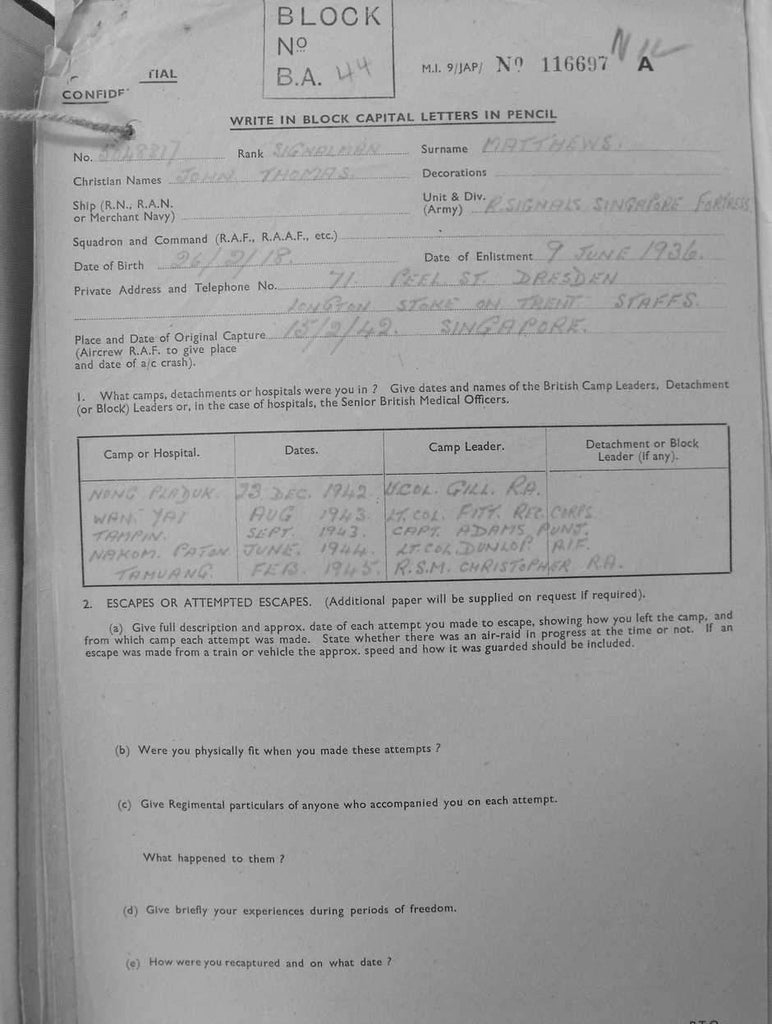 BLOCK
Nº
B.A. 44
M.I. 9/JAP/ Nº 116697 A
NIL
TIAL
CONFIDE
WRITE IN BLOCK CAPITAL LETTERS IN PENCIL
No. Rank SIGNALMAN Surname MATTHEWS.
Christian Names JOHN THOMAS. Decorations
Ship (R.N., R.A.N. or Merchant Navy) Unit & Div. (Army) R. SIGNALS SINGAPORE FORTRESS
Squadron and Command (R.A.F., R.A.A.F., etc.)
Date of Birth 26/2/18. Date of Enlistment 9 JUNE 1936.
Private Address and Telephone No. 71. PEEL ST. DRESDEN
LONGTON STOKE ON TRENT STAFFS.
Place and Date of Original Capture 15/2/42. SINGAPORE.
(Aircrew R.A.F. to give place
and date of a/c crash).
1. What camps, detachments or hospitals were you in ? Give dates and names of the British Camp Leaders, Detachment
(or Block) Leaders or, in the case of hospitals, the Senior British Medical Officers.
Camp or Hospital. Dates. Camp Leader. Detachment or Block Leader (if any).
NONG PLADUK. 23 DEC. 1942 LT.COL. GILL. R.A.
WAN. YAI AUG 1943. LT. COL. FITT. REC. CORPS
TAMPIN. SEPT. 1943. CAPT. ADAMS PUNJ.
NAKOM. PATON JUNE. 1944. LT. COL. DUNLOP. AIF.
TAMUANG. FEB. 1945. R.S.M. CHRISTOPHER R.A.
2. ESCAPES OR ATTEMPTED ESCAPES. (Additional paper will be supplied on request if required).
(a) Give full description and approx. date of each attempt you made to escape, showing how you left the camp, and
from which camp each attempt was made. State whether there was an air-raid in progress at the time or not. If an
escape was made from a train or vehicle the approx. speed and how it was guarded should be included.
(b) Were you physically fit when you made these attempts ?
(c) Give Regimental particulars of anyone who accompanied you on each attempt.
What happened to them ?
(d) Give briefly your experiences during periods of freedom.
(e) How were you recaptured and on what date ?